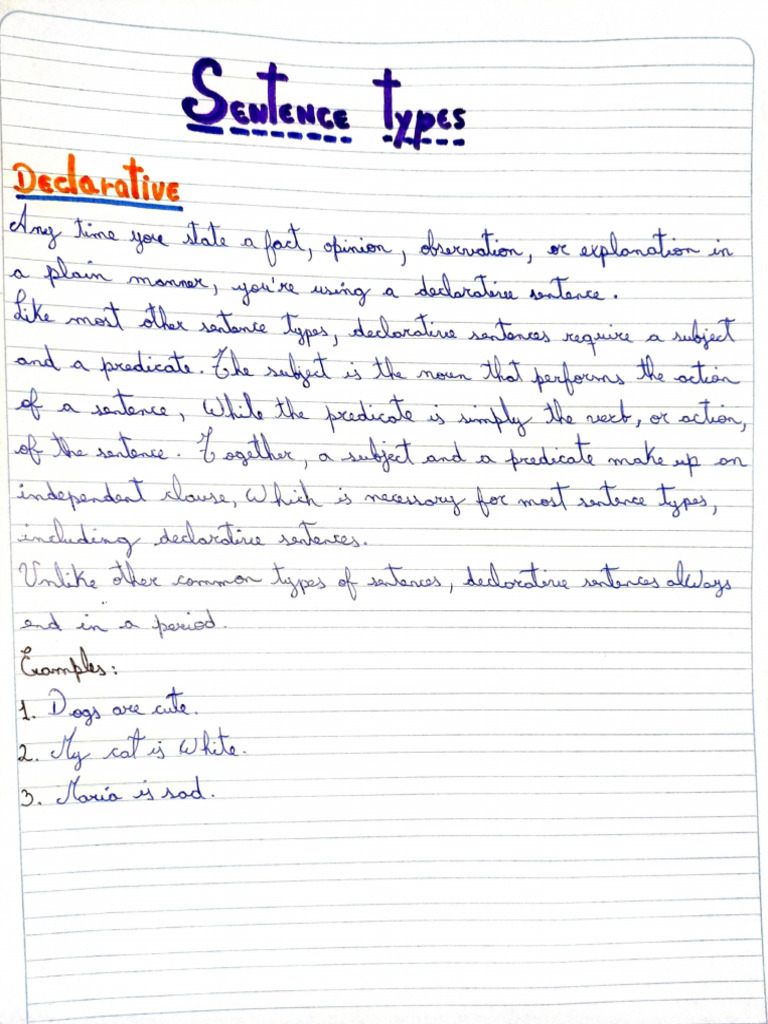 Sentence types
Declarative
Any time you state a fact, opinion, observation, or explanation in
a plain manner, you're using a declarative sentence.
Like most other sentence types, declarative sentences require a subject
and a predicate. The subject is the noun that performs the action
of a sentence, While the predicate is simply the verb, or action,
of the sentence. Together, a subject and a predicate make up an
independent clause, Which is necessary for most sentence types,
including declarative sentences.
Unlike other common types of sentences, declarative sentences always
end in a period.
Examples:
1. Dogs are cute.
2. My cat is White.
3. Maria is sad.